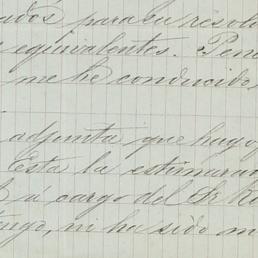 ados para su resolu
equivalentes. Pen
me he conducido,
adjunta que hago,
Esta la estimara
á cargo del Sr. Ro
tengo, ni ha sido m